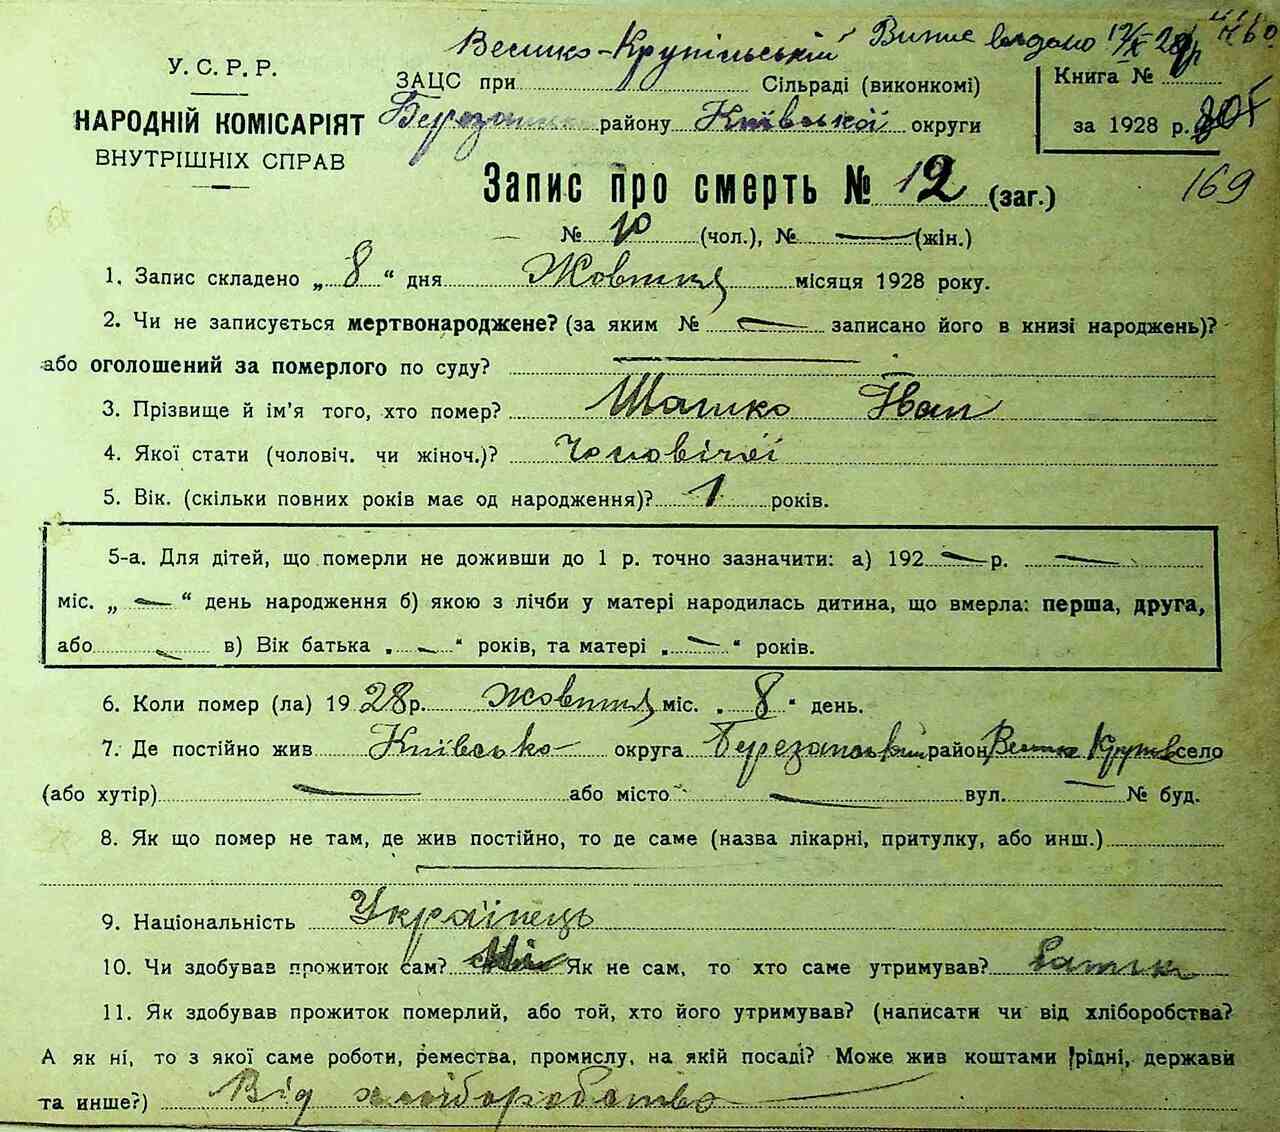 Велико-Крупільській Випис видано 12/IX 28р
У. С. Р. Р.
НАРОДНІЙ КОМІСАРІЯТ
ВНУТРІШНІХ СПРАВ
ЗАЦС при Сільраді (виконкомі)
Березанськ району Київської округи
Книга №
за 1928 р.
169
Запис про смерть № 12 (заг.)
№ 10 (чол.), № — (жін.)
1. Запис складено „ 8 “ дня Жовтня місяця 1928 року.
2. Чи не записується мертвонароджене? (за яким № — записано його в книзі народжень)?
або оголошений за померлого по суду? —
3. Прізвище й ім'я того, хто помер? Шашко Іван
4. Якої стати (чоловіч. чи жіноч.)? Чоловічої
5. Вік. (скільки повних років має од народження)? 1 років.
5-а. Для дітей, що померли не доживши до 1 р. точно зазначити: а) 192 — р. —
міс. „ — “ день народження б) якою з лічби у матері народилась дитина, що вмерла: перша, друга,
або — в) Вік батька „ — “ років, та матері „ — “ років.
6. Коли помер (ла) 1928 р. жовтня міс. „ 8 “ день.
7. Де постійно жив Київсько округа Березанський район Велик Крупол село
(або хутір) — або місто — вул. — № буд.
8. Як що помер не там, де жив постійно, то де саме (назва лікарні, притулку, або инш.)
—
9. Національність Українець
10. Чи здобував прожиток сам? Ні Як не сам, то хто саме утримував? Батьки
11. Як здобував прожиток померлий, або той, хто його утримував? (написати чи від хліборобства?
А як ні, то з якої саме роботи, ремества, промислу, на якій посаді? Може жив коштами рідні, держави
та инше?) Від хліборобство